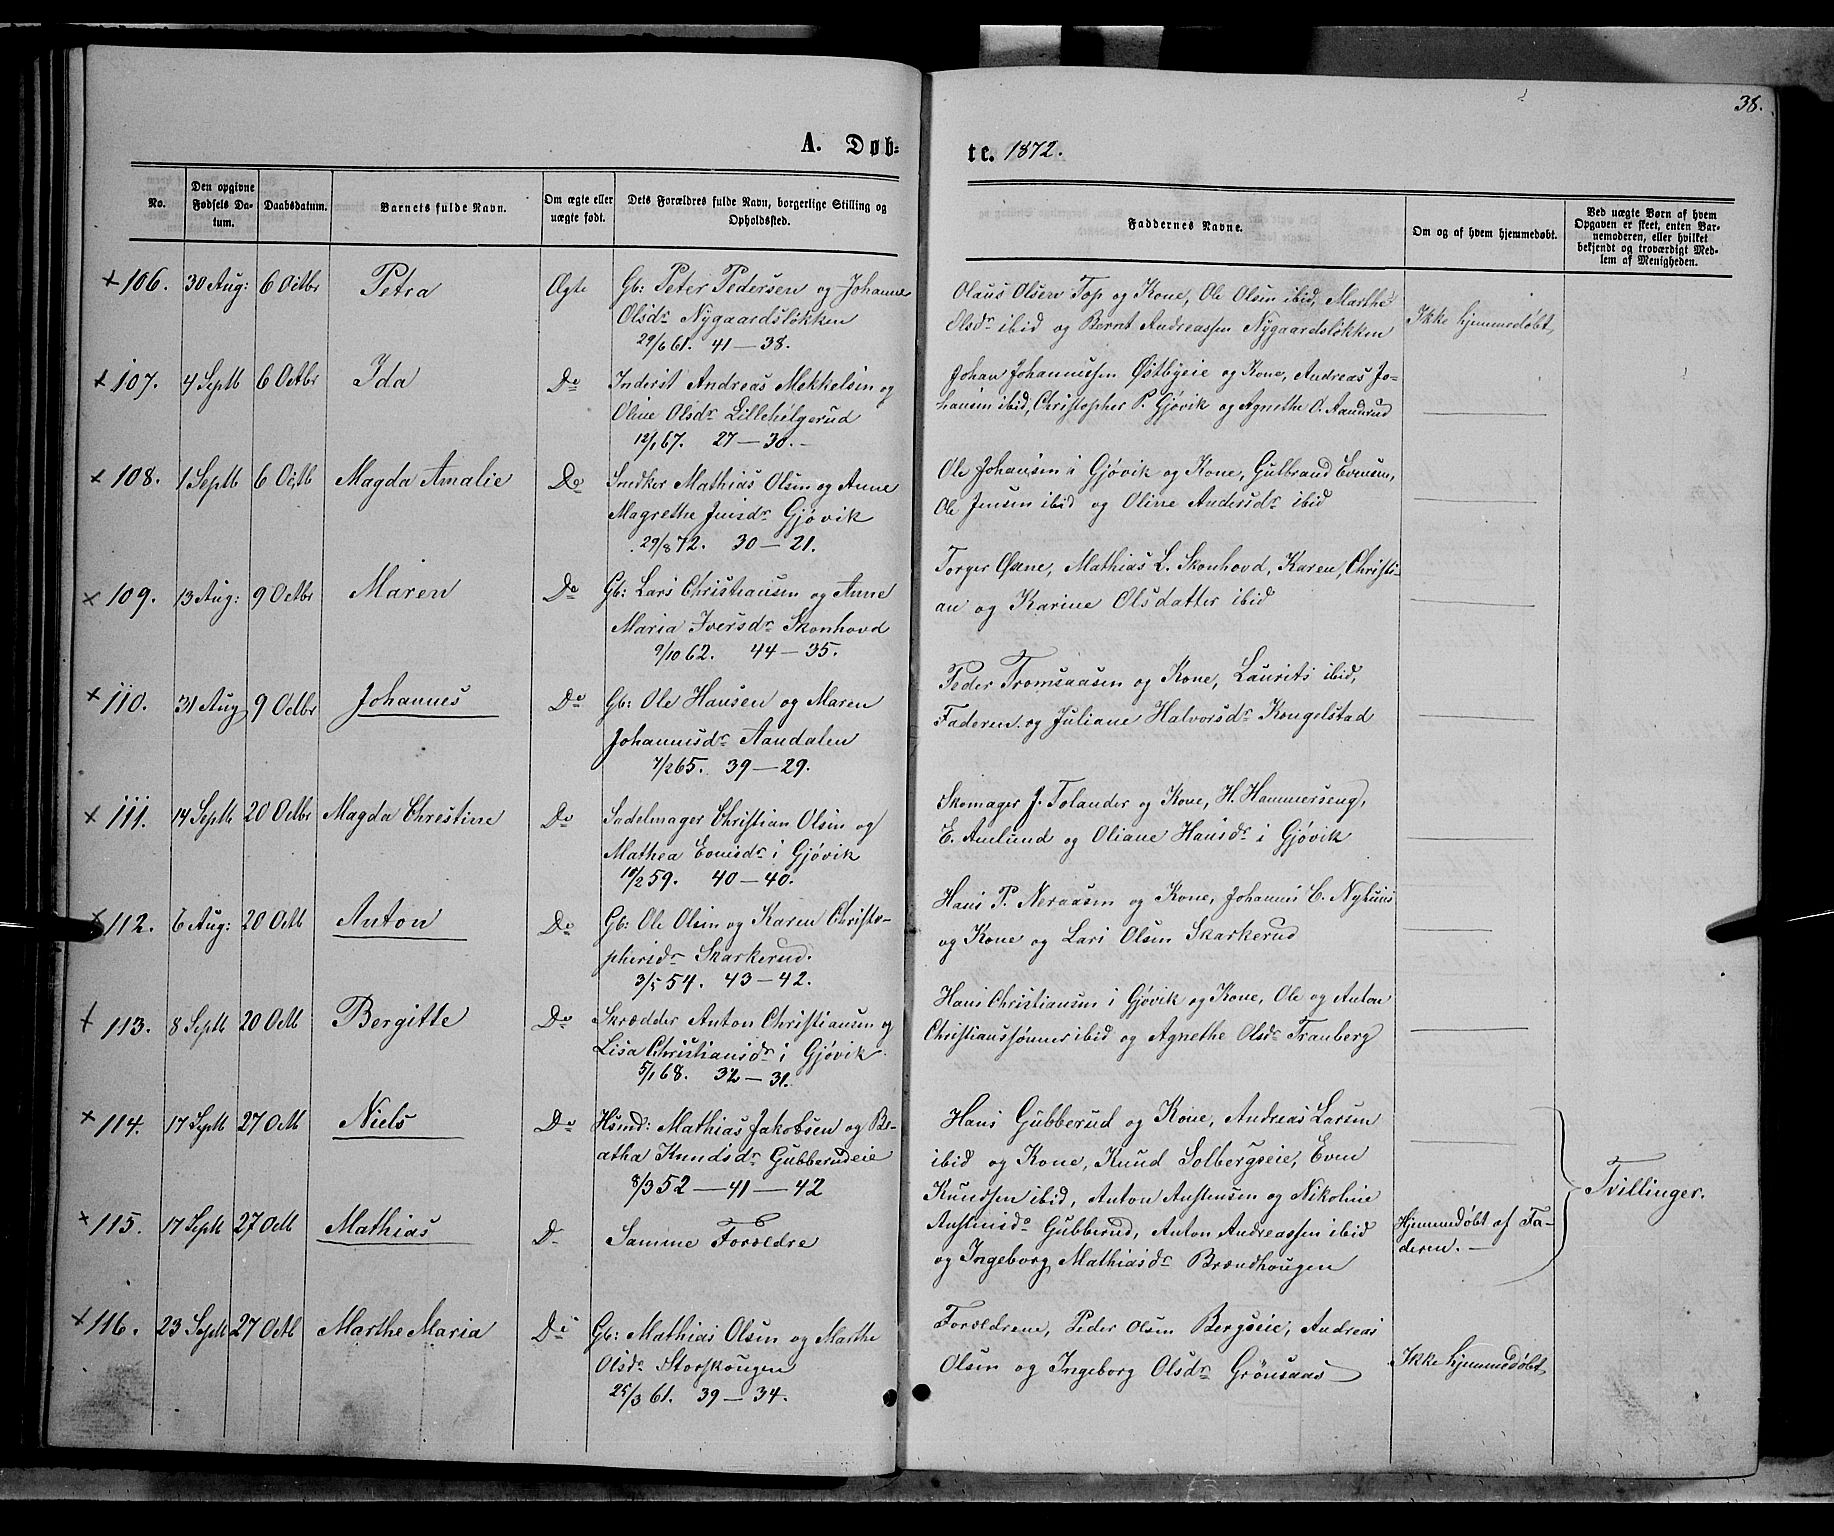 38.
A. Døb- te. 1872.
No. | Den opgivne Fødsels Datum. | Daabsdatum. | Barnets fulde Navn. | Om ægte eller uægte født. | Dets Forældres fulde Navn, borgerlige Stilling og Opholdssted. | Faddernes Navne. | Om og af hvem hjemmedøbt. | Ved uægte Børn af hvem Opgaven er skeet, enten Barnemoderen, eller hvilket bekjendt og troværdigt Medlem af Menigheden.
+ 106. 30 Aug: 6 Octbr Petra Ægte Gb: Peter Pedersen og Johanne
Olsdr Nygaardsløkken
29/6 61. 41 — 38.
Olaus Olsen Top og Kone, Ole Olsen ibid, Marthe
Olsdr ibid og Bernt Andreassen Nygaardsløkken
Ikke hjemmedøbt
+ 107. 4 Septb 6 Octbr Ida Do Inderst Andreas Mekkelsen og
Oline Olsdr Lillehelgerud
12/1 67. 27 — 30.-
Johan Johannessen Østbyeie og Kone, Andreas Jo-
hansen ibid, Christopher P. Gjøvik og Agnethe O. Aandrud
+ 108. 1 Septb 6 Octb Magda Amalie Do Snedker Mathias Olsen og Anne
Magrethe Jensdr Gjøvik
29/8 72. 30 — 21.
Ole Johansen i Gjøvik og Kone, Gulbrand Evensen,
Ole Jensen ibid og Oline Andersdr ibid
+ 109. 13 Aug: 9 Octbr Maren Do Gb: Lars Christiansen og Anne
Maria Iversdr Skonhovd
9/10 62. 44 — 35.
Torger Øene, Mathias L. Skonhovd, Karen, Christi-
an og Karine Olsdatter ibid
+ 110. 31 Aug 9 Octbr Johannes Do Gb: Ole Hansen og Maren
Johannesdr Aandalen
7/2 65. 39 — 29.
Peder Tromsaasen og Kone, Laurits ibid,
Faderen og Juliane Halvorsdr Kongelstad
+ 111. 14 Septb 20 Octbr Magda Christine Do Sadelmager Christian Olsen og
Mathea Evensdr i Gjøvik
10/2 59. 40 — 40.
Skomager J. Tolander og Kone, H. Hammerseng,
E. Amlund og Oliane Hansdr i Gjøvik
+ 112. 6 Aug: 20 Octb Anton Do Gb: Ole Olsen og Karen Christo-
phersdr Skarkerud.
3/5 54. 43 — 42.
Hans P. Neraasen og Kone, Johannes C. Nyhuus
og Kone og Lars Olsen Skarkerud
+ 113. 8 Septb 20 Octb Bergitte Do Skrædder Anton Christiansen og
Lisa Christiansdr i Gjøvik
5/1 68. 32 — 31.
Hans Christiansen i Gjøvik og Kone, Ole og Anton
Christianssønner ibid og Agnethe Olsdr Tranberg
+ 114. 17 Septb 27 Octb Niels Do Hsmd: Mathias Jakobsen og Be-
atha Knudsdr Gubberudeie
8/3 52 — 41 — 42
Hans Gubberud og Kone, Andreas Larsen
ibid og Kone, Knud Solbergseie, Even
Knudsen ibid, Anton Austensen og Nikoline
Tvillinger.
+ 115. 17 Septb 27 Octb Mathias D. Samme Forældre
Austensdr Gubberud, Anton Andreassen ibid
og Ingeborg Mathiasdr Brændhougen
Hjemmedøbt af Fa-
deren. —
+ 116. 23 Septb 27 Octb Marthe Maria Do Gb: Mathias Olsen og Marthe
Olsdr Storskougen
25/3 61. 39 — 34.
Forældrene, Peder Olsen Bergseie, Andreas
Olsen og Ingeborg Olsdr Grønsaas
Ikke hjemmedøbt